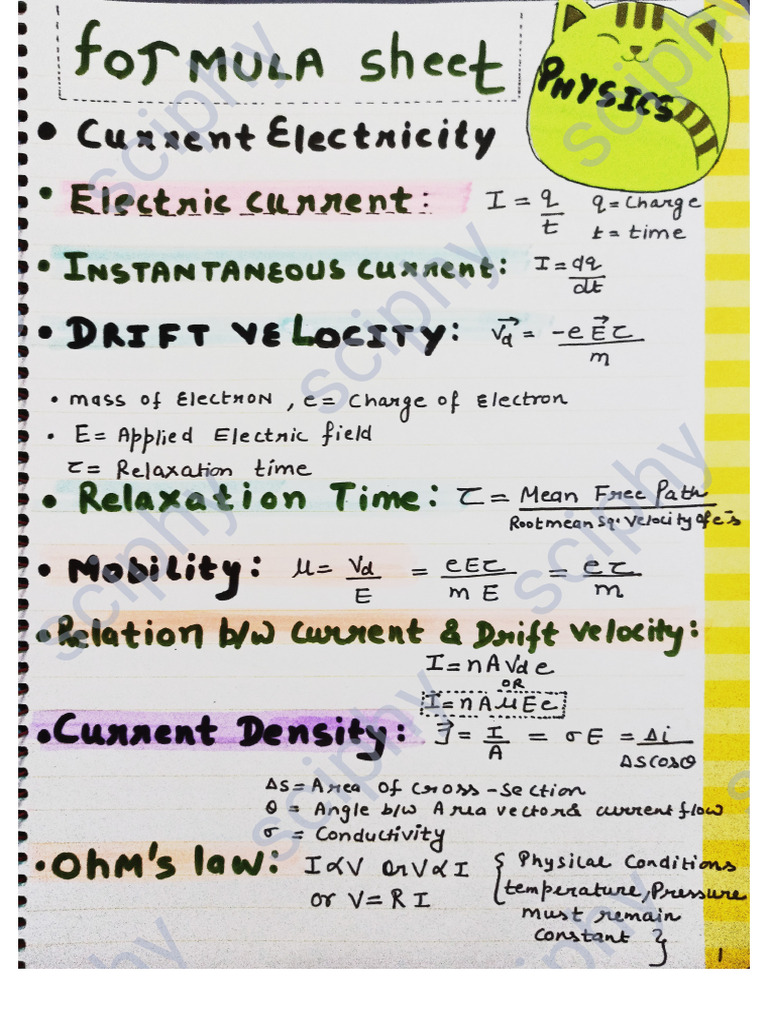 FORMULA sheet
PHYSICS
• Current Electricity
• Electric current: I = q/t q = Charge
t = time
• INSTANTANEOUS current: I = dq/dt
• DRIFT VELOCITY: V⃗d = -eE⃗τ/m
• mass of Electron , e = Charge of Electron
• E = Applied Electric field
τ = Relaxation time
• Relaxation Time: τ = Mean Free Path / Root mean Sq. velocity of e⁻s
• Mobility: μ = Vd/E = eEτ/mE = eτ/m
• Relation b/w current & Drift velocity:
I = nAVde
OR
I = nAμEe
• Current Density: J⃗ = I/A = σE = Δi/ΔScosθ
ΔS = Area of cross-section
θ = Angle b/w Area vector & current flow
σ = Conductivity
• Ohm's law: I∝V or V∝I { Physical Conditions
or V = RI temperature, Pressure
must remain
constant }
1
sciphy
sciphy
sciphy
sciphy
sciphy
sciphy
sciphy
sciphy